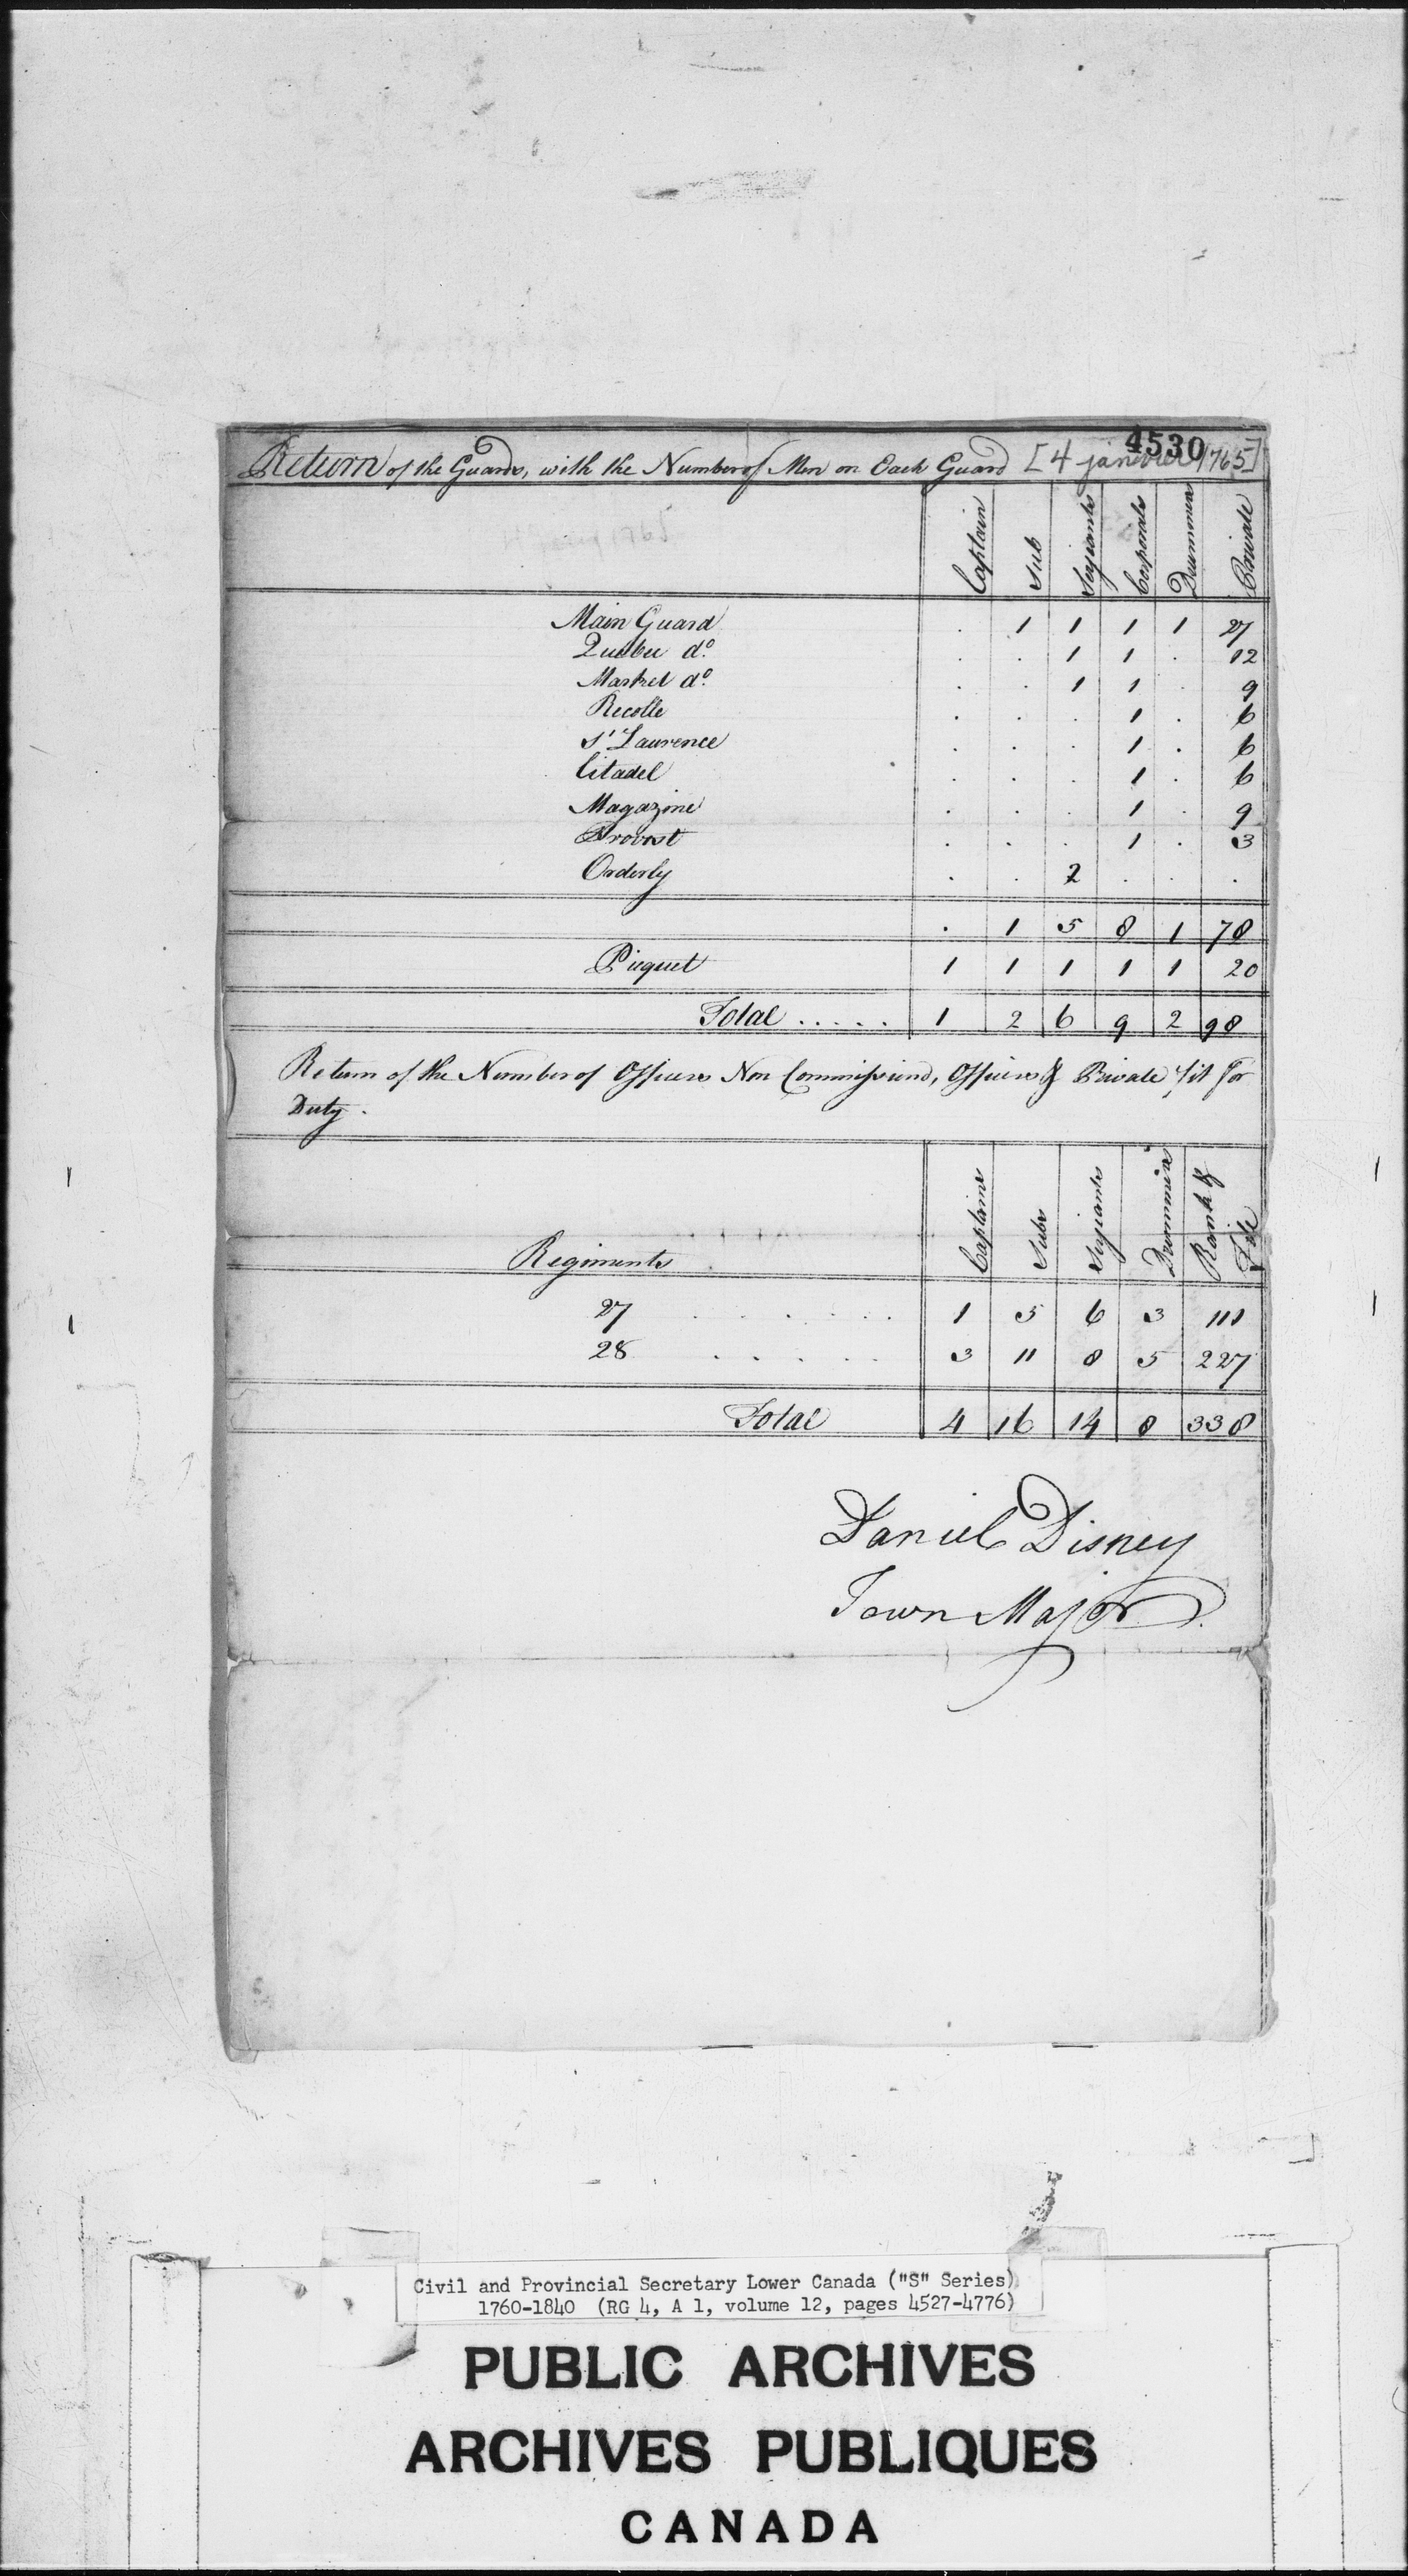 4530
Return of the Guards, with the Number of Men on Each Guard [4 janvier 1765]
Captain Sub Serjeants Corporals Drummers Private
Main Guard . 1 1 1 1 27
Quebec do. . . 1 1 . 12
Market do. . . 1 1 . 9
Recolle . . . 1 . 6
St Laurence . . . 1 . 6
Citadel . . . 1 . 6
Magazine . . . 1 . 9
Provost . . . 1 . 3
Orderly . . 2 . . .
. 1 5 8 1 78
Picquet 1 1 1 1 1 20
Total ..... 1 2 6 9 2 98
Return of the Number of Officers Non Commissiond, Officers & Private fit for
Duty.
Regiments Captains Subs Serjeants Drummers Rank & File
27 . . . . . . . 1 5 6 3 111
28 . . . . . . 3 11 8 5 227
Total 4 16 14 8 338
Daniel Disney
Town Major
Civil and Provincial Secretary Lower Canada ("S" Series)
1760-1840 (RG 4, A 1, volume 12, pages 4527-4776)
PUBLIC ARCHIVES
ARCHIVES PUBLIQUES
CANADA